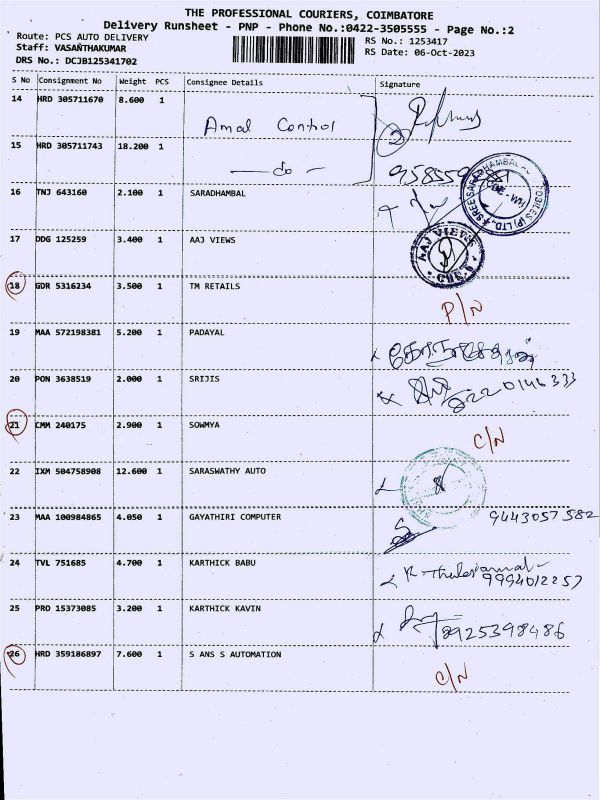 THE PROFESSIONAL COURIERS, COIMBATORE
Delivery Runsheet - PNP - Phone No.:0422-3505555 - Page No.:2
Route: PCS AUTO DELIVERY
Staff: VASANTHAKUMAR
DRS No.: DCJB125341702
RS No.: 1253417
RS Date: 06-Oct-2023
S No Consignment No Weight PCS Consignee Details Signature
14 HRD 305711670 8.600 1 Amal Control
15 HRD 305711743 18.200 1 — do —
16 TNJ 643160 2.100 1 SARADHAMBAL
17 DDG 125259 3.400 1 AAJ VIEWS
AAJ VIEWS
18 GDR 5316234 3.500 1 TM RETAILS P/N
19 MAA 572198381 5.200 1 PADAYAL
20 PON 3638519 2.000 1 SRIJIS 8220146333
21 CMM 240175 2.900 1 SOWMYA C/N
22 IXM 504758908 12.600 1 SARASWATHY AUTO
23 MAA 100984865 4.050 1 GAYATHIRI COMPUTER 9443057582
24 TVL 751685 4.700 1 KARTHICK BABU 9994012257
25 PRO 15373085 3.200 1 KARTHICK KAVIN 8925398486
26 HRD 359186897 7.600 1 S ANS S AUTOMATION C/N